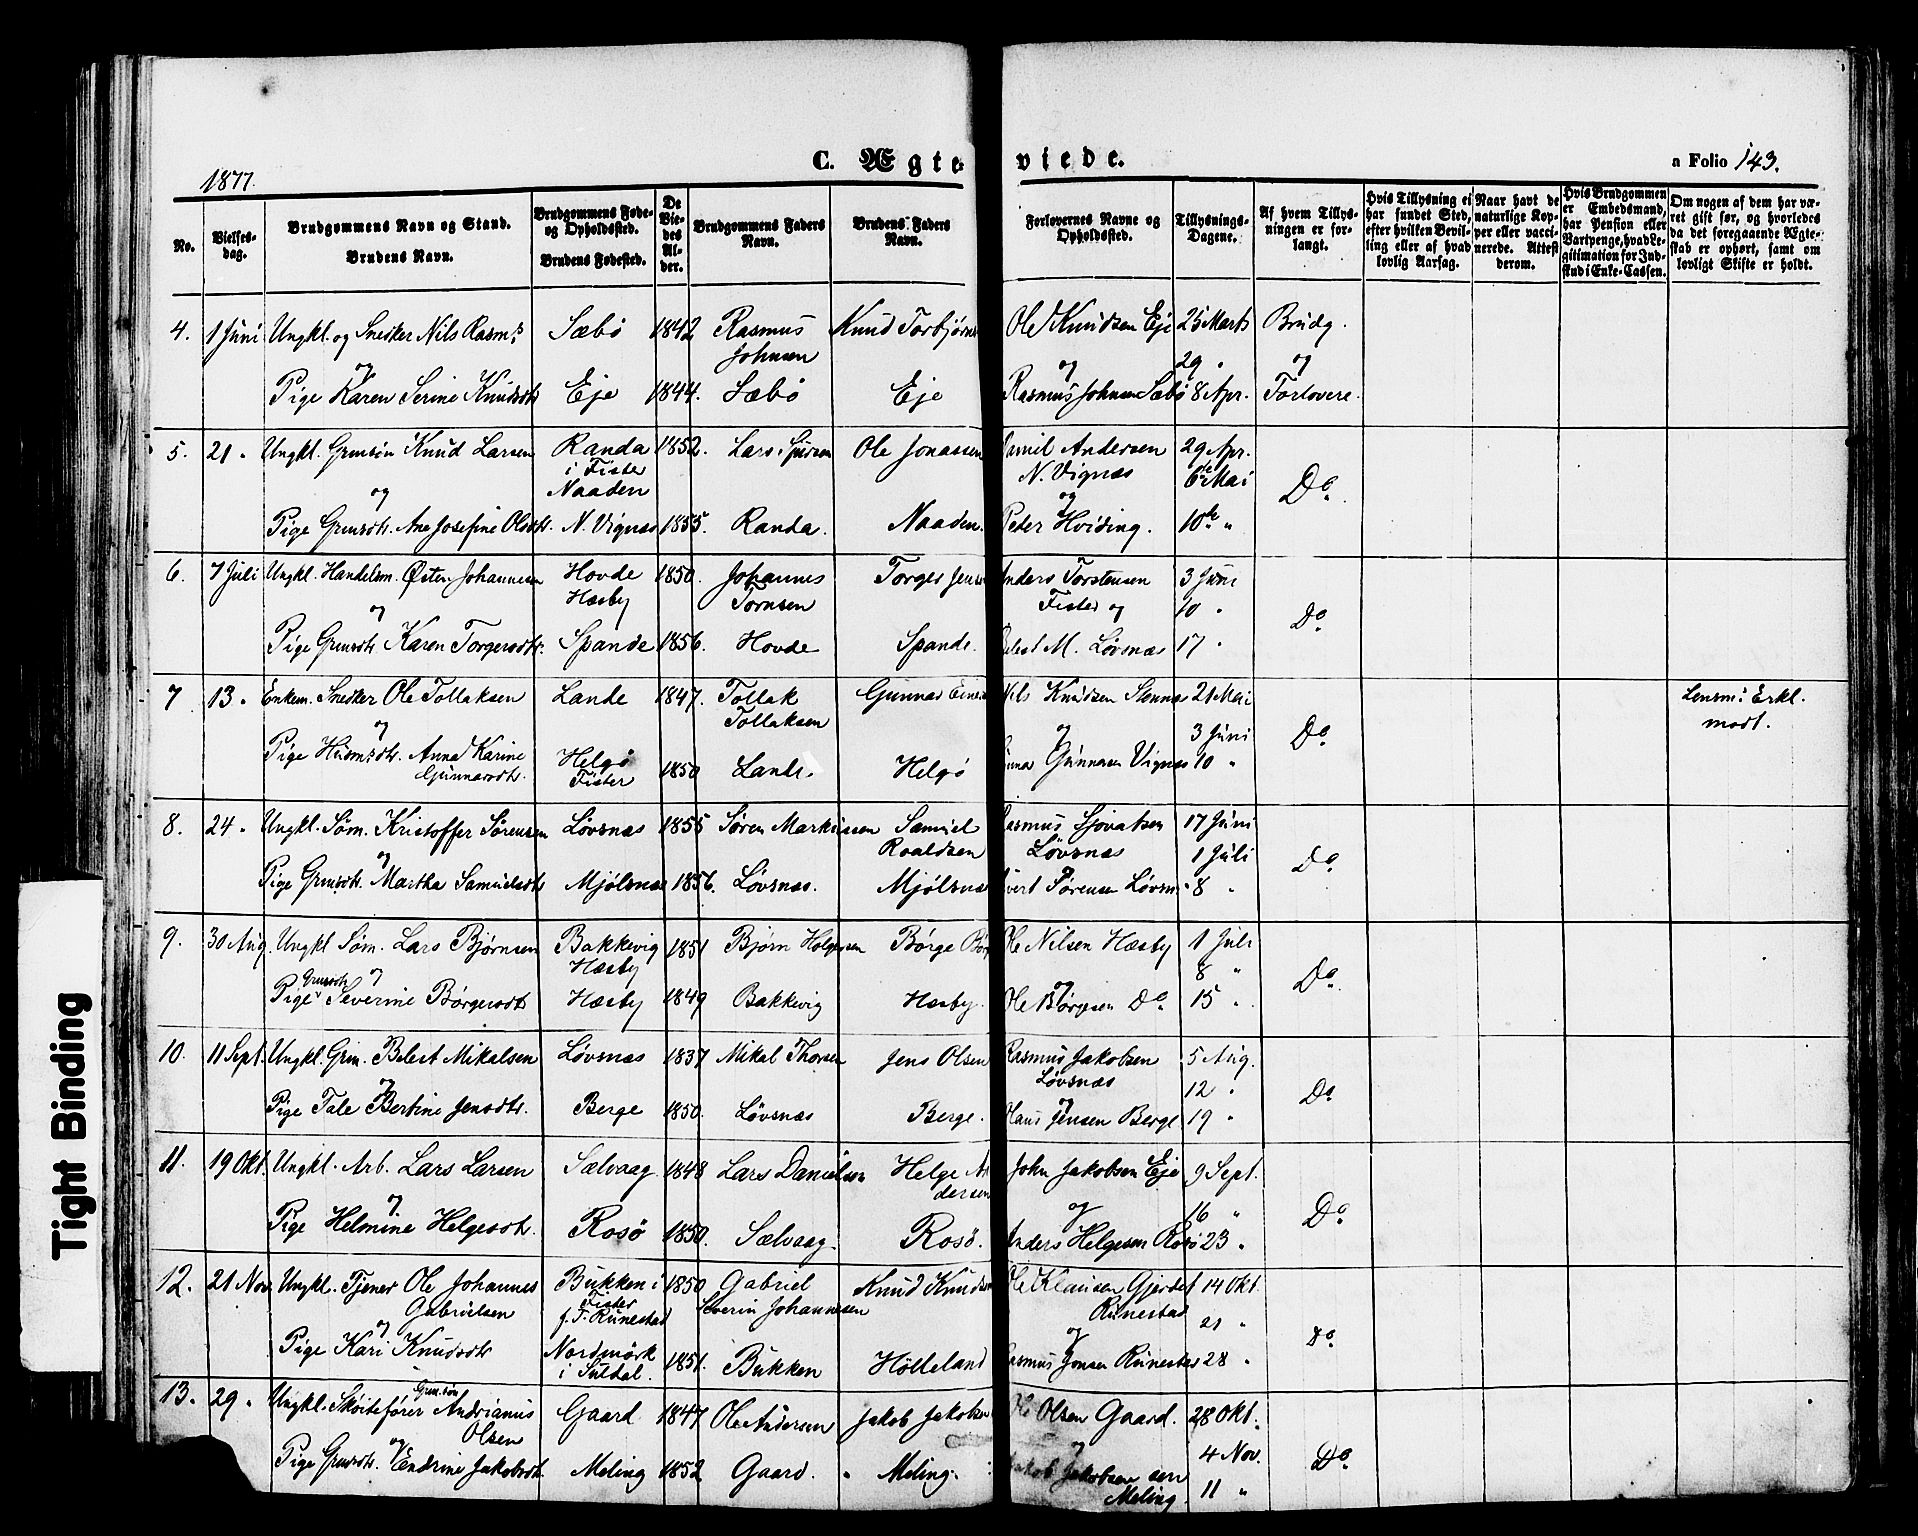 1877.
C. Ægteviede.
a Folio 143.
No.
Vielses-dag.
Brudgommens Navn og Stand.
Brudens Navn.
Brudgommens Føde- og Opholdssted.
Brudens Fødested.
De Viedes Alder.
Brudgommens Faders Navn.
Brudens Faders Navn.
Forlovernes Navne og Opholdssted.
Tillysnings-Dagene.
Af hvem Tillysningen er forlangt.
Hvis Tillysning ei har fundet Sted, efter hvilken Bevilling eller af hvad lovlig Aarsag.
Naar havt de naturlige Kopper eller vaccinerede. Attest derom.
Hvis Brudgommen er Embedsmand, har Pension eller Vartpenge, hvad Legitimation for Indskud i Enke-Cassen.
Om nogen af dem har været gift før, og hvorledes da det foregaaende Ægteskab er ophørt, samt om lovligt Skifte er holdt.
4. 1 Juni Ungkl. og Snedker Nils Rasm.s Sæbø 1842 Rasmus Knud Torbjørns Ole Knudsen Eje 25 Marts Brudg.
og Johnsen og 29 " og
Pige Karen Serine Knudsdt. Eje 1844. Sæbø Eje Rasmus Johnsen Sæbø 8 Apr. Forlovere.
5. 21 " Ungkl. Grmsøn Knud Larsen Randa 1852. Lars Ole Jonassen Andersen 29 Apr.
i Fister N. Vignæs 6te Mai
og Naaden og Do.
Pige Grmsdt. Ane Josefine Olsdt. N. Vignæs 1855. Randa. Naaden. Peter Hviding. 10de "
6. 7 Juli Ungkl. Handelsm. Østen Johannesen Hovde 1850. Johannes Torger Jens Anders Torstensen 3 Juni
og Hæsby Tornsen Fister og 10 " Do.
Pige Grmsdt. Karen Torgersdt. Spande 1856. Hovde Spande. Belest M. Løvsnæs 17 "
7 13 " Enkem. Snedker Ole Tollaksen Lande 1847. Tollak Gunnar Nils Knudsen Stennæs 21 Mai Lensm: Erkl.
og Tollaksen og 3 Juni Do. modt.
Pige Husmsdt. Anna Karine Helgø 1850 Lande. Helgø Gunnarsen Vignæs 10 "
Gunnarsdt. Fister
8. 24 " Ungkl. Søm. Kristoffer Sørensen Løvsnæs 1855 Søren Markussen Samuel Rasmus Sjovatsen 17 Juni
og Roaldsen Løvsnæs 1 Juli Do.
Pige Grmsdt. Martha Samuelsdt. Mjølsnæs 1856. Løvsnæs. Mjølsnæs Sørensen Løvsn. 8 "
9. 30 Aug. Ungkl. Søm. Lars Bjørnsen Bakkevig 1851 Bjørn Holgersen Børge Bør Ole Nilsen Hæsby 1 Juli
Grmsdt. og Hæsby og 8 " Do.
Pige Severine Børgersdt. Hæsby 1849 Bakkevig Hæsby. Ole Børgesen Do. 15 "
10. 11 Sept. Ungkl. Grm. Belest Mikalsen Løvsnæs 1837 Mikal Thorsen Jens Olsen Rasmus Jakobsen 5 Aug.
og Løvsnæs 12 " Do.
Pige Tale Bertine Jensdt. Berge 1850. Løvsnæs Berge. og Hans Jensen Berge 19 "
11. 19 Okt. Ungkl. Arb. Lars Larsen Sælvaag 1848 Lars Danielsen Helge An John Jakobsen Eje 9 Sept.
og. dersen og 16 " Do.
Pige Helmine Helgesdt. Rosø 1850. Sælvaag. Rosø. Anders Helgesen Rosø 23 "
12. 21 Nov. Ungkl. Tjener Ole Johannes Bukken i 1850 Gabriel Knud Knudsen Ole Klausen Gjerdet 14 Okt.
Gabrielsen Fister Severin Johannesen Runestad
og f. T. Runestad og 21 " Do.
Pige Kari Knudsdt. Nordmørk 1851. Bukken Hølleland Rasmus Jonsen Runestad 28 "
i Suldal.
13. 29 " Ungkl. Skøitefører Grmsøn Andrianus Gaard 1847 Ole Andersen Jakob Jakobsen Ole Olsen Gaard. 28 Okt.
Olsen
og og 4 Nov. Do.
Pige Grmsdt. Endrine Jakobsdt. Meling 1852 Gaard. " Meling. Jakob Jakobsen sen 11 "
Meling.
Tight Binding